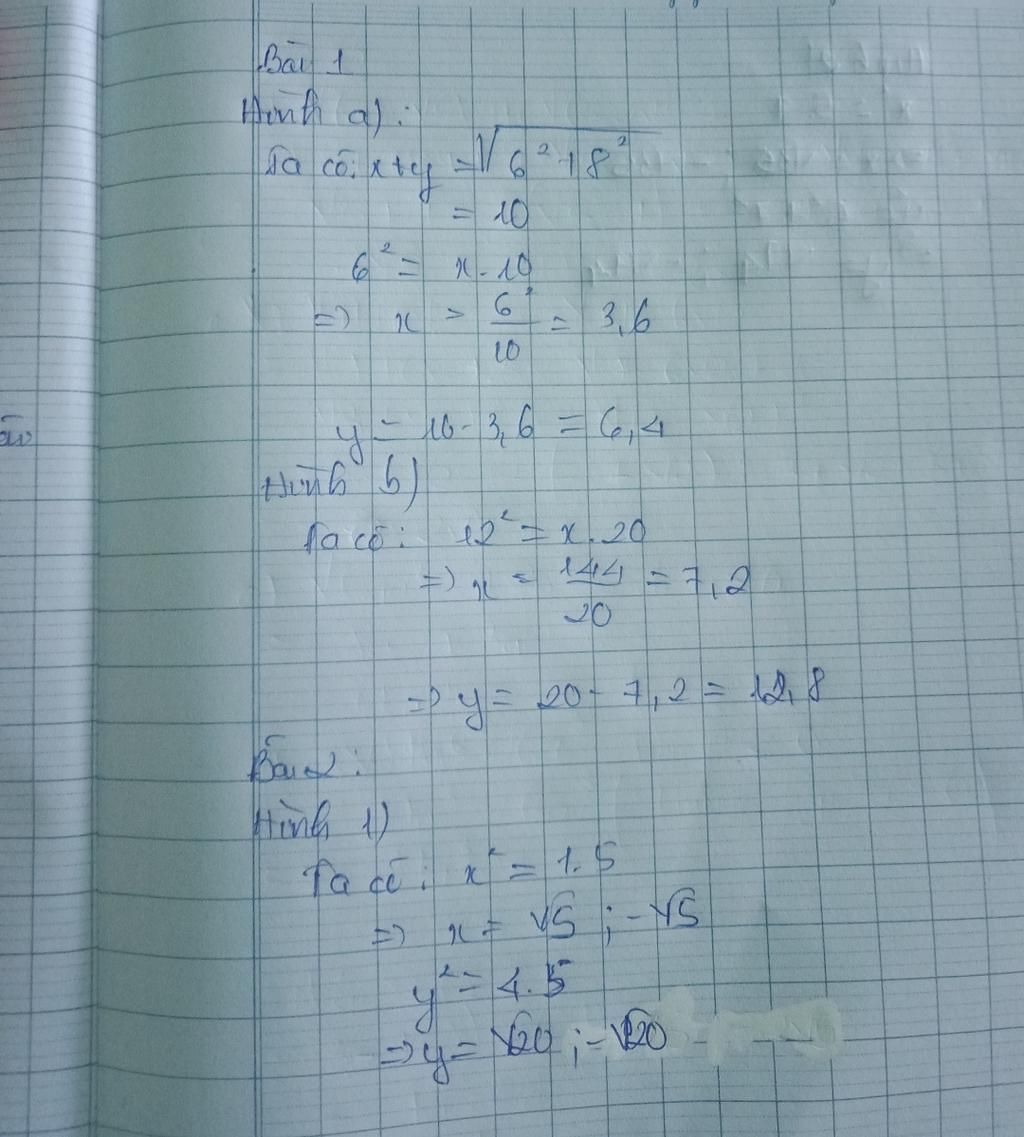 Bài 1
Hình a) :
Ta có: x+y = √6² + 8²
= 10
6² = x . 10
=> x = 6²/10 = 3,6
y = 10 - 3,6 = 6,4
Hình b)
Ta có : 12² = x . 20
=> x = 144/20 = 7,2
=> y = 20 - 7,2 = 12,8
Bài 2 :
Hình 1)
Ta có : x² = 1.5
=> x = √5 ; -√5
y² = 4.5
=> y = √20 ; -√20